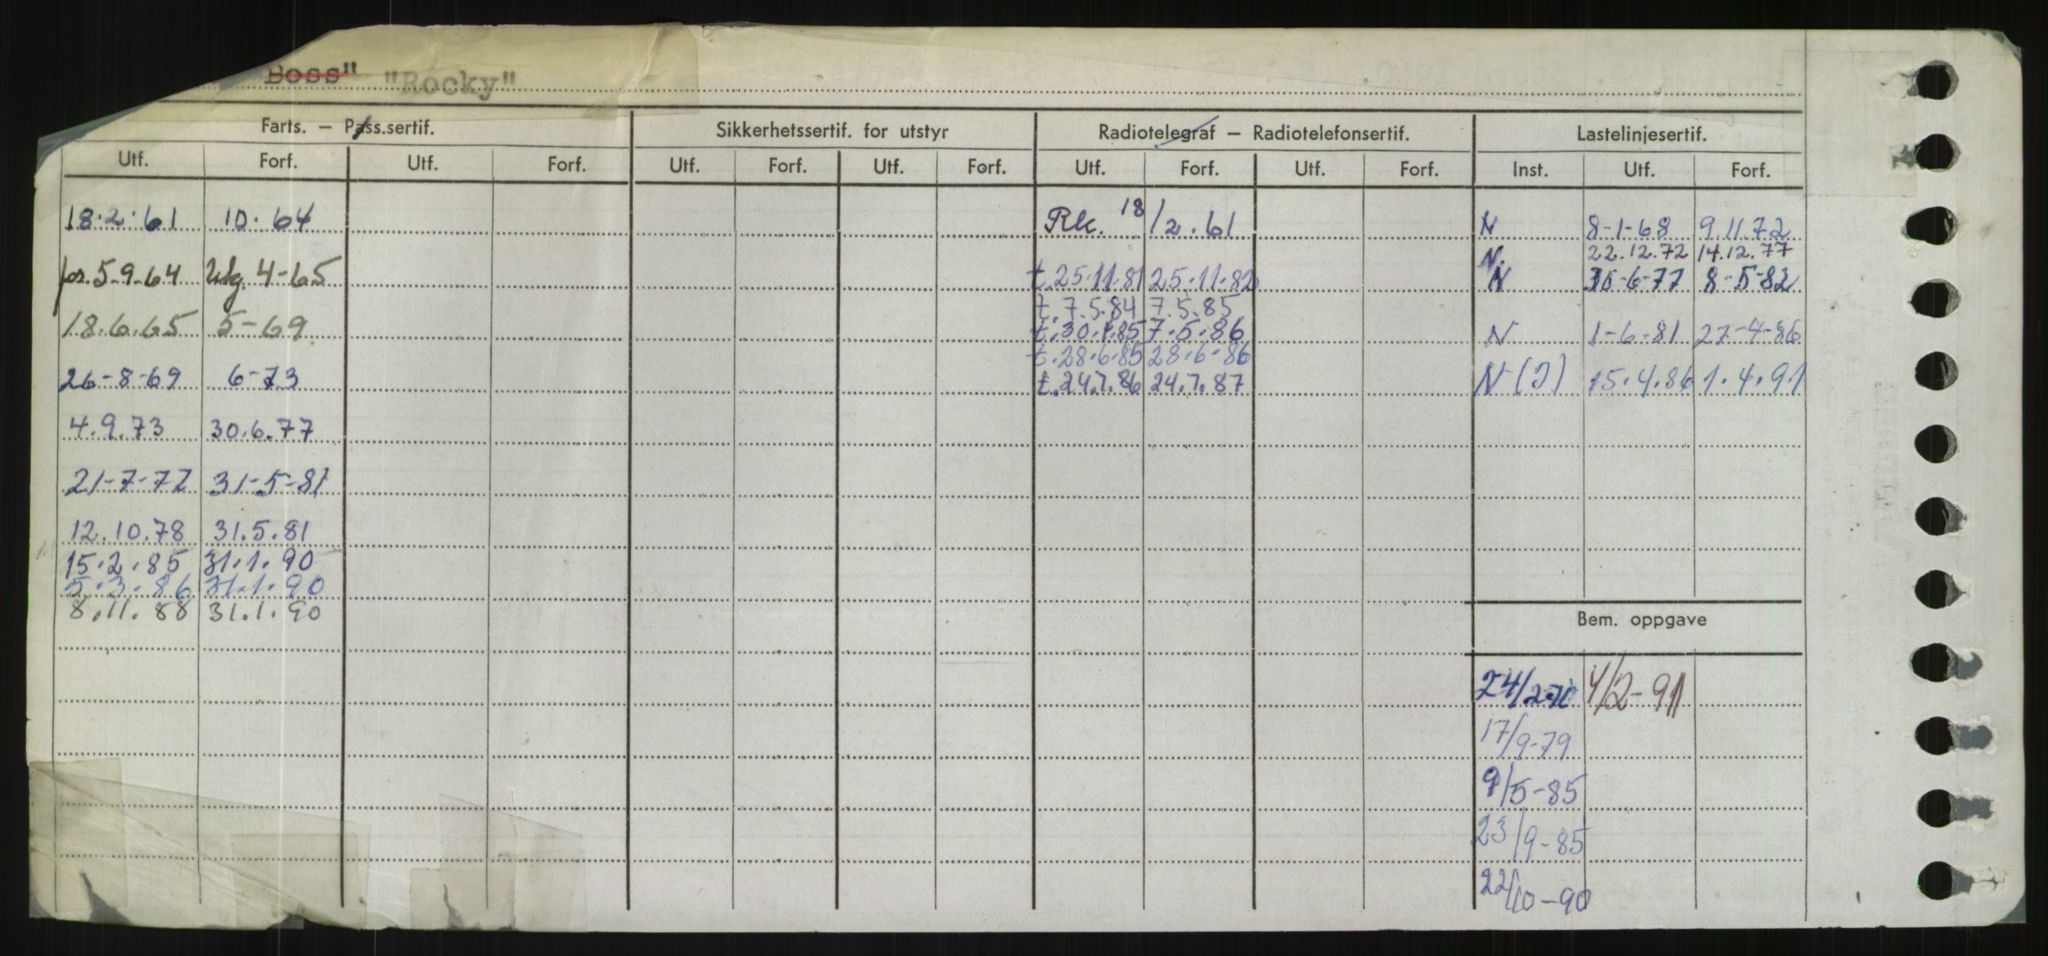 Boss" "Rocky"
Farts. – Pass.sertif. Sikkerhetssertif. for utstyr Radiotelegraf – Radiotelefonsertif. Lastelinjesertif.
Utf. Forf. Utf. Forf. Utf. Forf. Utf. Forf. Utf. Forf. Utf. Forf. Inst. Utf. Forf.
18.2.61 10.64 Rk. 18/2.61 N 8-1-68 9.11.72
N. 22.12.72 14.12.77
5.9.64 Utg. 4-65 t.25.11.81 25.11.82 N 8-5-82
t.7.5.84 7.5.85
18.6.65 5-69 7.5.86 N 1-6-81 27-4-86
t.28.6.85 28.6.86
26-8-69 6-73 t.24.7.86 24.7.87 N (J) 15.4.86 1.4.91
4.9.73 30.6.77
21-7-77 31-5-81
12.10.78 31.5.81
15.2.85 31.1.90
5.3.86 31.1.90
8.11.88 31.1.90
Bem. oppgave
4/2-91
17/9-79
9/5-85
23/9-85
22/10-90